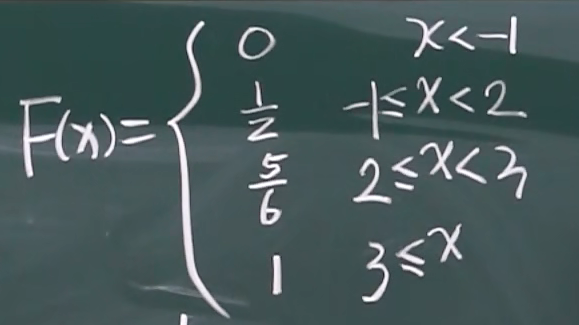 F(x) = { 0 x < -1
1/2 -1 ≤ x < 2
5/6 2 ≤ x < 3
1 3 ≤ x